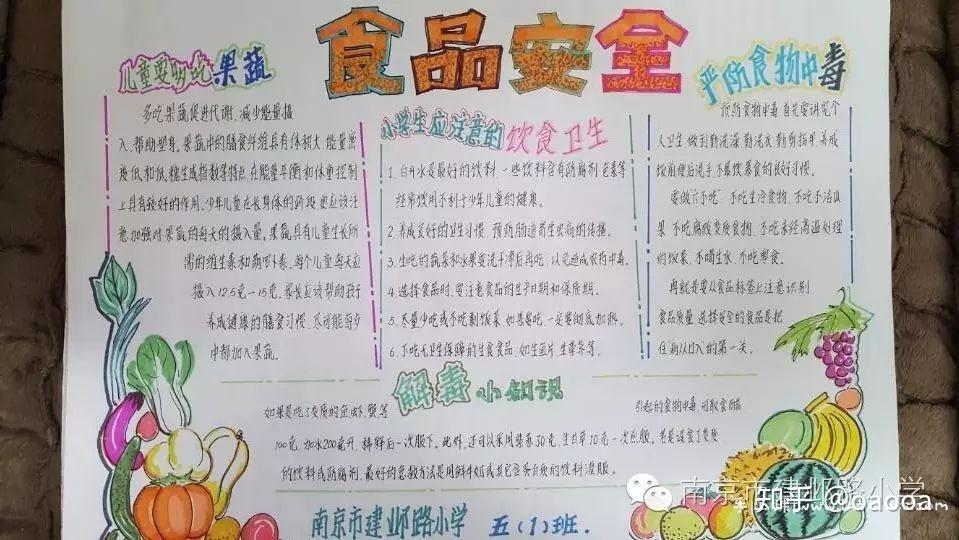 食品安全
儿童要多吃果蔬
多吃果蔬促进代谢,减少能量摄
入,帮助塑身。果蔬中的膳食纤维具有体积大,能量密
度低,和低糖生成指数等特点,在能量平衡和体重控制
上具有较好的作用。少年儿童在长身体的阶段,更应该注
意加强对果蔬的每天的摄入量。果蔬具有儿童生长所
需的维生素和葫罗卜素。每个儿童每天应
摄入12.5克—15克,家长应该帮助孩子
养成健康的膳食习惯,尽可能每夕
中都加入果蔬。
小学生应注意的饮食卫生
1.白开水是最好的饮料,一些饮料含有防腐剂、色素等
经常饮用不利于少年儿童的健康。
2.养成良好的卫生习惯,预防肠道寄生虫病的传播。
3.生吃的蔬菜和水果要洗干净后再吃,以免造成农药中毒。
4.选择食品时,要注意食品的生产日期和保质期。
5.尽量少吃或不吃剩饭菜,如需要吃,一定要彻底加热。
6.不吃无卫生保障的生食食品,如生鱼片、生荸荠等。
严防食物中毒
预防食物中毒,首先要讲究个
人卫生,做到勤洗澡,勤洗衣,勤剪指甲,养成
饭前便后洗手,不暴饮暴食的良好习惯。
要做“六不吃”,不吃生冷食物,不吃不洁瓜
果,不吃腐败变质食物,不吃未经高温处理
的饭菜,不喝生水,不吃零食。
再就是要从食品标签上注意识别
食品质量,选择安全的食品是把
住病从口入的第一关。
解毒小知识
如果是吃了变质的鱼、虾、蟹等引起的食物中毒,可取食醋
100克,加水200毫升,稀释后一次服下。此外,还可以采用紫苏30克,生甘草10克一次煎服。若是误食了变质
的饮料或防腐剂,最好的急救方法是用鲜牛奶或其它含蛋白质的饮料灌服。
南京市建邺路小学 五(1)班.
南京市建邺路小学
知乎 @oaooa